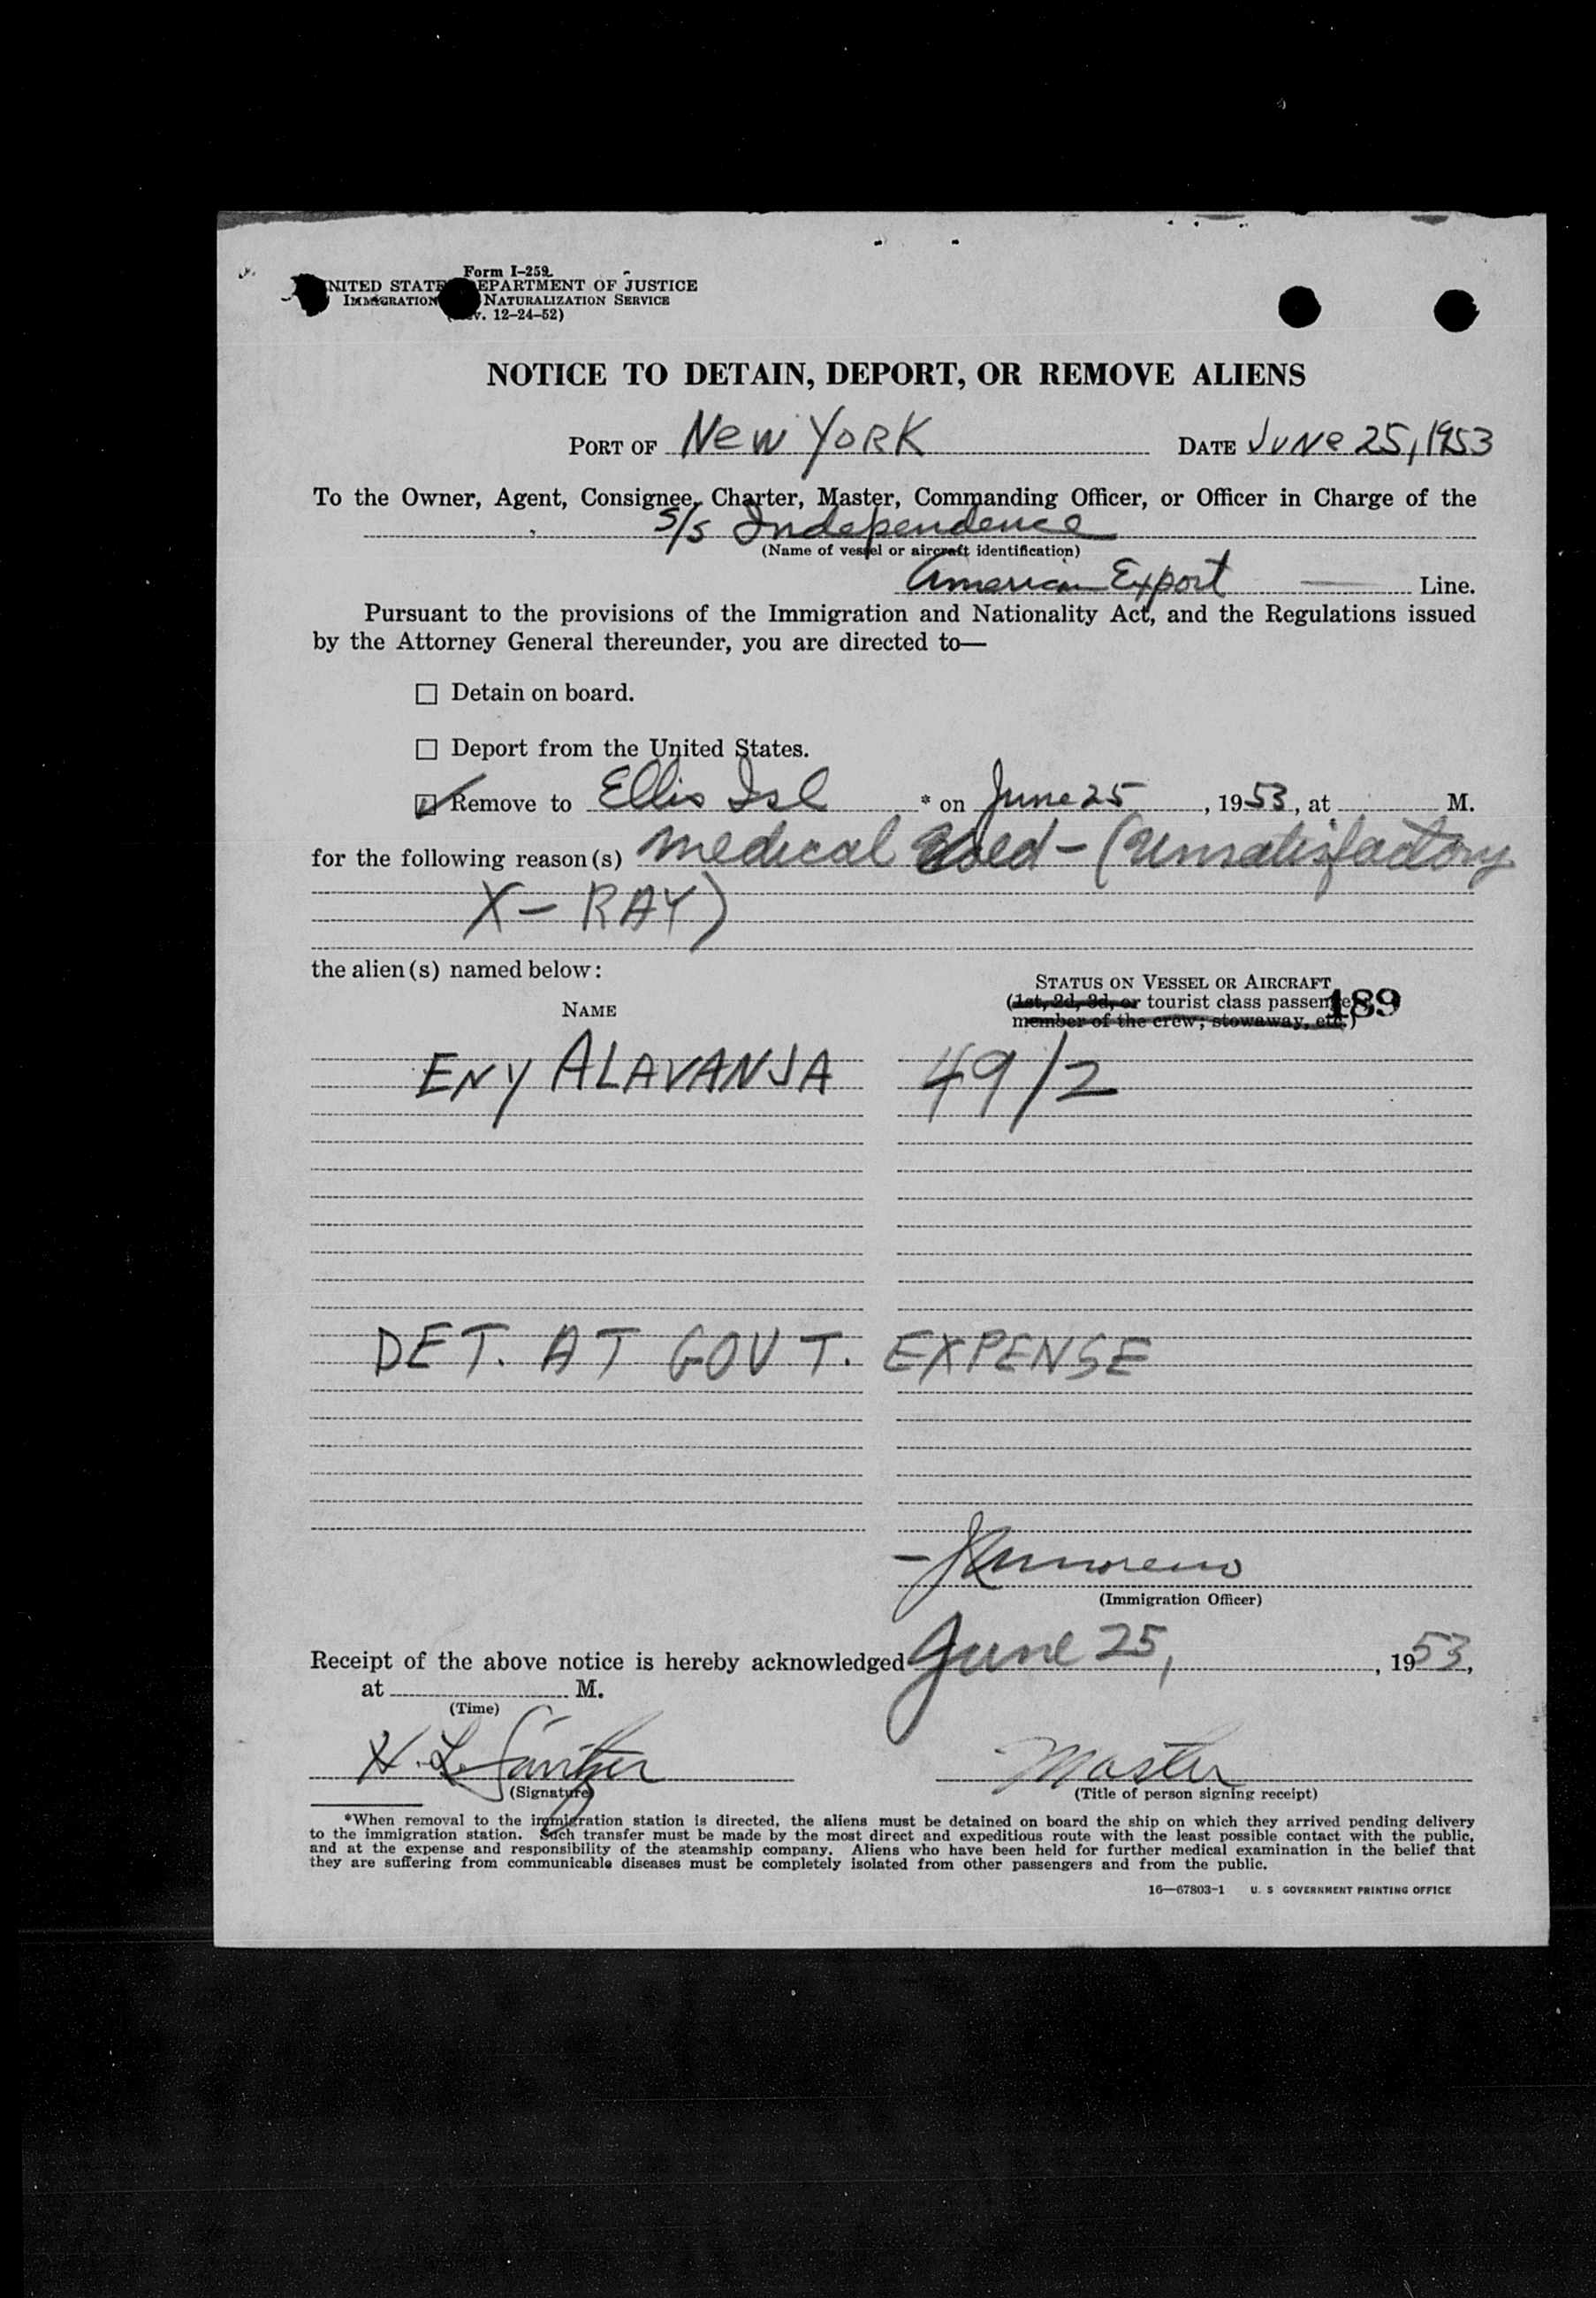 Form I-259
UNITED STATES DEPARTMENT OF JUSTICE
IMMIGRATION NATURALIZATION SERVICE
v. 12-24-52)
NOTICE TO DETAIN, DEPORT, OR REMOVE ALIENS
PORT OF New YORK DATE JUNe 25, 1953
To the Owner, Agent, Consignee, Charter, Master, Commanding Officer, or Officer in Charge of the
S/S Independence
(Name of vessel or aircraft identification)
American Export Line.
Pursuant to the provisions of the Immigration and Nationality Act, and the Regulations issued
by the Attorney General thereunder, you are directed to—
Detain on board.
Deport from the United States.
Remove to Ellis Isl * on June 25, 1953, at M.
for the following reason(s) medical Hold - (Unsatisfactory
X-RAY)
the alien(s) named below:
STATUS ON VESSEL OR AIRCRAFT
NAME (1st, 2d, 3d, or tourist class passenger 189
member of the crew; stowaway, etc.)
ENY ALAVANJA 49/2
DET. AT GOVT. EXPENSE
(Immigration Officer)
Receipt of the above notice is hereby acknowledged June 25, , 1953,
at M.
(Time)
H. L. Master
(Signature) (Title of person signing receipt)
*When removal to the immigration station is directed, the aliens must be detained on board the ship on which they arrived pending delivery
to the immigration station. Such transfer must be made by the most direct and expeditious route with the least possible contact with the public,
and at the expense and responsibility of the steamship company. Aliens who have been held for further medical examination in the belief that
they are suffering from communicable diseases must be completely isolated from other passengers and from the public.
16—67803-1 U. S GOVERNMENT PRINTING OFFICE